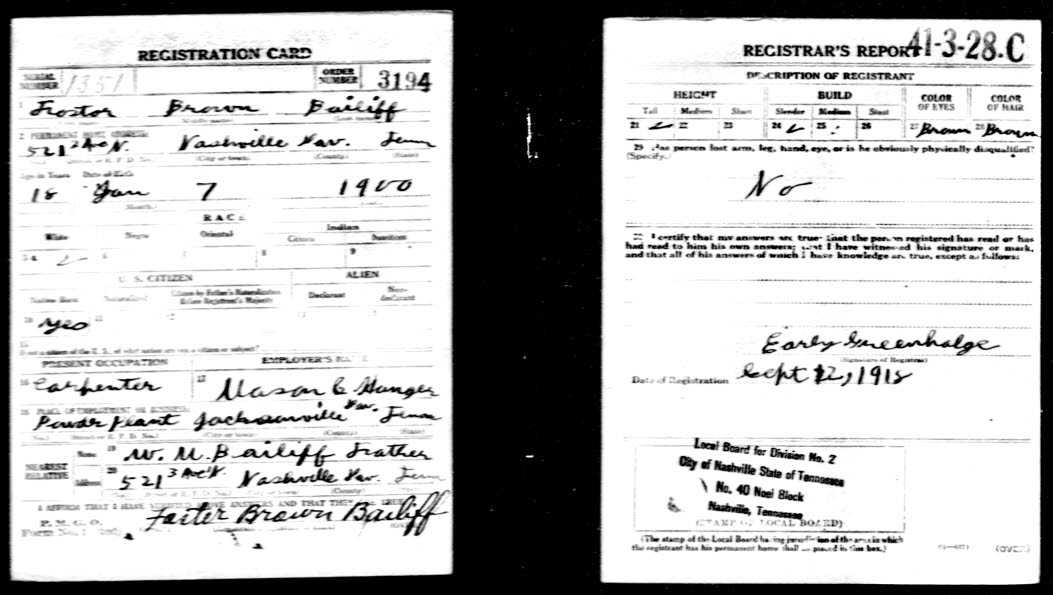 REGISTRATION CARD
SERIAL NUMBER 1351 ORDER NUMBER 3194
1 Foster Brown Bailiff
2 PERMANENT HOME ADDRESS:
521 2 Ave N. Nashville Dav. Tenn
(City or town) (County) (State)
Age in Years Date of Birth
18 Jan 7 1900
(Month)
RACE
White Negro Oriental Indian
Citizen Noncitizen
U. S. CITIZEN ALIEN
Native Born Naturalized Citizen by Father's Naturalization Before Registrant's Majority Declarant Non-declarant
10 Yes 11 12 13 14
15
If not a citizen of the U. S., of what nation are you a citizen or subject?
PRESENT OCCUPATION EMPLOYER'S NAME
16 Carpenter 17 Mason & Hanger
18 PLACE OF EMPLOYMENT OR BUSINESS:
Powder plant Jacksonville Dav. Tenn
(No.) (Street or R. F. D. No.) (City or town) (County) (State)
NEAREST RELATIVE
Name 19 W. M. Bailiff Father
Address 20 521 3 Ave N. Nashville Dav. Tenn
I AFFIRM THAT I HAVE VERIFIED ABOVE ANSWERS AND THAT THEY ARE TRUE
P. M. G. O.
Form No. 1
Foster Brown Bailiff
REGISTRAR'S REPORT 41-3-28.C
DESCRIPTION OF REGISTRANT
HEIGHT BUILD COLOR OF EYES COLOR OF HAIR
Tall Medium Short Slender Medium Stout
21 22 23 24 25 26 27 Brown 28 Brown
29 Has person lost arm, leg, hand, eye, or is he obviously physically disqualified?
(Specify.)
No
30 I certify that my answers are true; that the person registered has read or has
had read to him his own answers; that I have witnessed his signature or mark,
and that all of his answers of which I have knowledge are true, except as follows:
Early Greenhalge
(Signature of Registrar)
Date of Registration Sept 12, 1918
Local Board for Division No. 2
City of Nashville State of Tennessee
No. 40 Noel Block
Nashville, Tennessee
(STAMP OF LOCAL BOARD)
(The stamp of the Local Board having jurisdiction of the area in which
the registrant has his permanent home shall be placed in this box.)
(OVER)